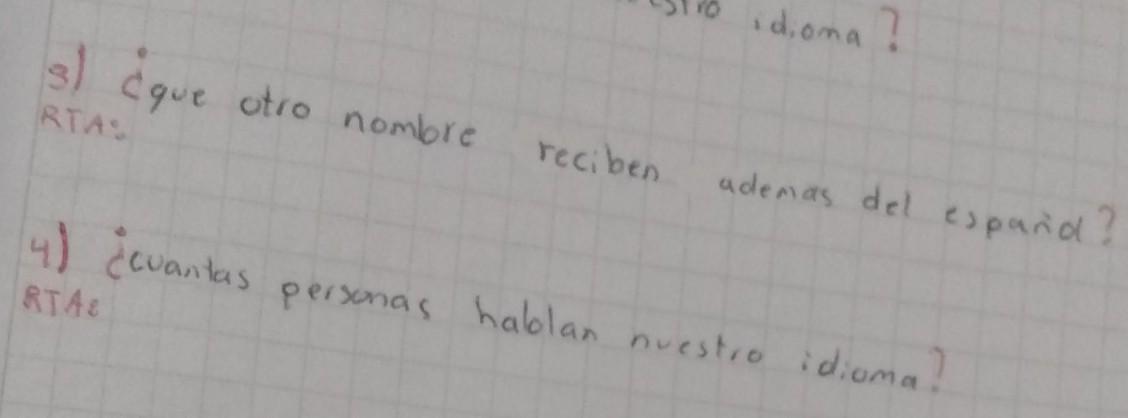 idioma?
3) ¿que otro nombre reciben ademas del español?
RTA:
4) ¿cuantas personas hablan nuestro idioma?
RTA: